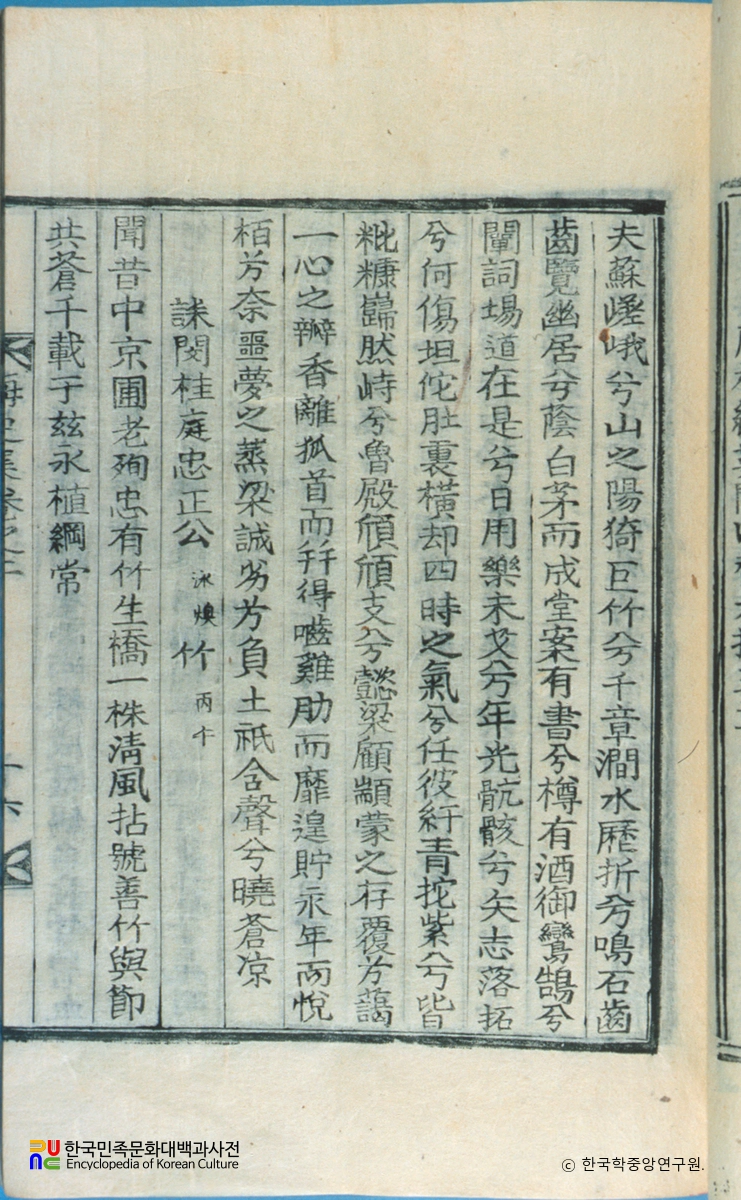 夫蘇嵯峨兮山之陽猗巨竹兮千章澗水歷折兮鳴石齒
齒覽幽居兮蔭白茅而成堂案有書兮樽有酒御鸞鵠兮
闡詞場道在是兮日用樂未艾兮年光骯骸兮矢志落拓
兮何傷坦佗肚裏橫却四時之氣兮任彼紆青拕紫兮皆
粃糠巋然峙兮魯殿頎頎支兮懿梁顧顓蒙之存覆兮藹
一心之瓣香離狐首而幷得嚙雞肋而靡遑貯永年而悅
栢兮奈噩夢之蒸梁誠劣兮負土祇含聲兮曉蒼凉
誄閔桂庭忠正公泳煥竹丙午
聞昔中京圃老殉忠有竹生橋一株淸風拈號善竹與節
共蒼千載于玆永植綱常
海史集卷之二
十六
한국민족문화대백과사전
Encyclopedia of Korean Culture
© 한국학중앙연구원.